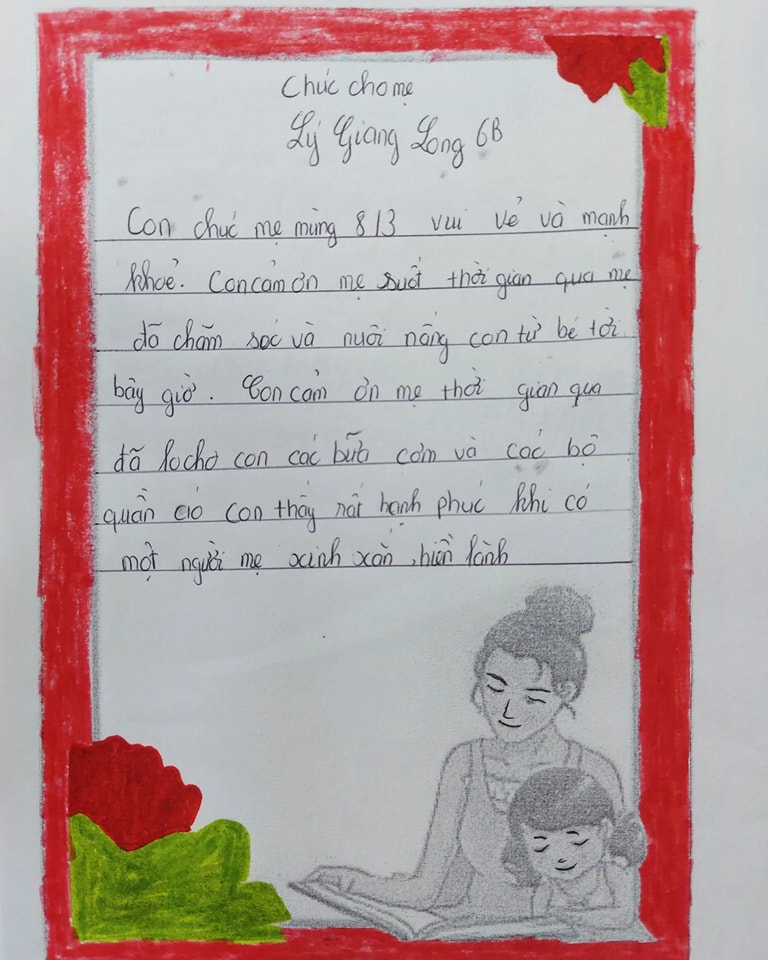 Chúc cho mẹ
Lý Giang Long 6B
Con chúc mẹ mừng 8/3 vui vẻ và mạnh
khoẻ. Con cảm ơn mẹ suốt thời gian qua mẹ
đã chăm sóc và nuôi nấng con từ bé tời
bây giờ. Con cảm ơn mẹ thời gian qua
đã lo cho con các bữa cơm và các bộ
quần áo con thấy rất hạnh phúc khi có
một người mẹ xinh xắn, hiền lành